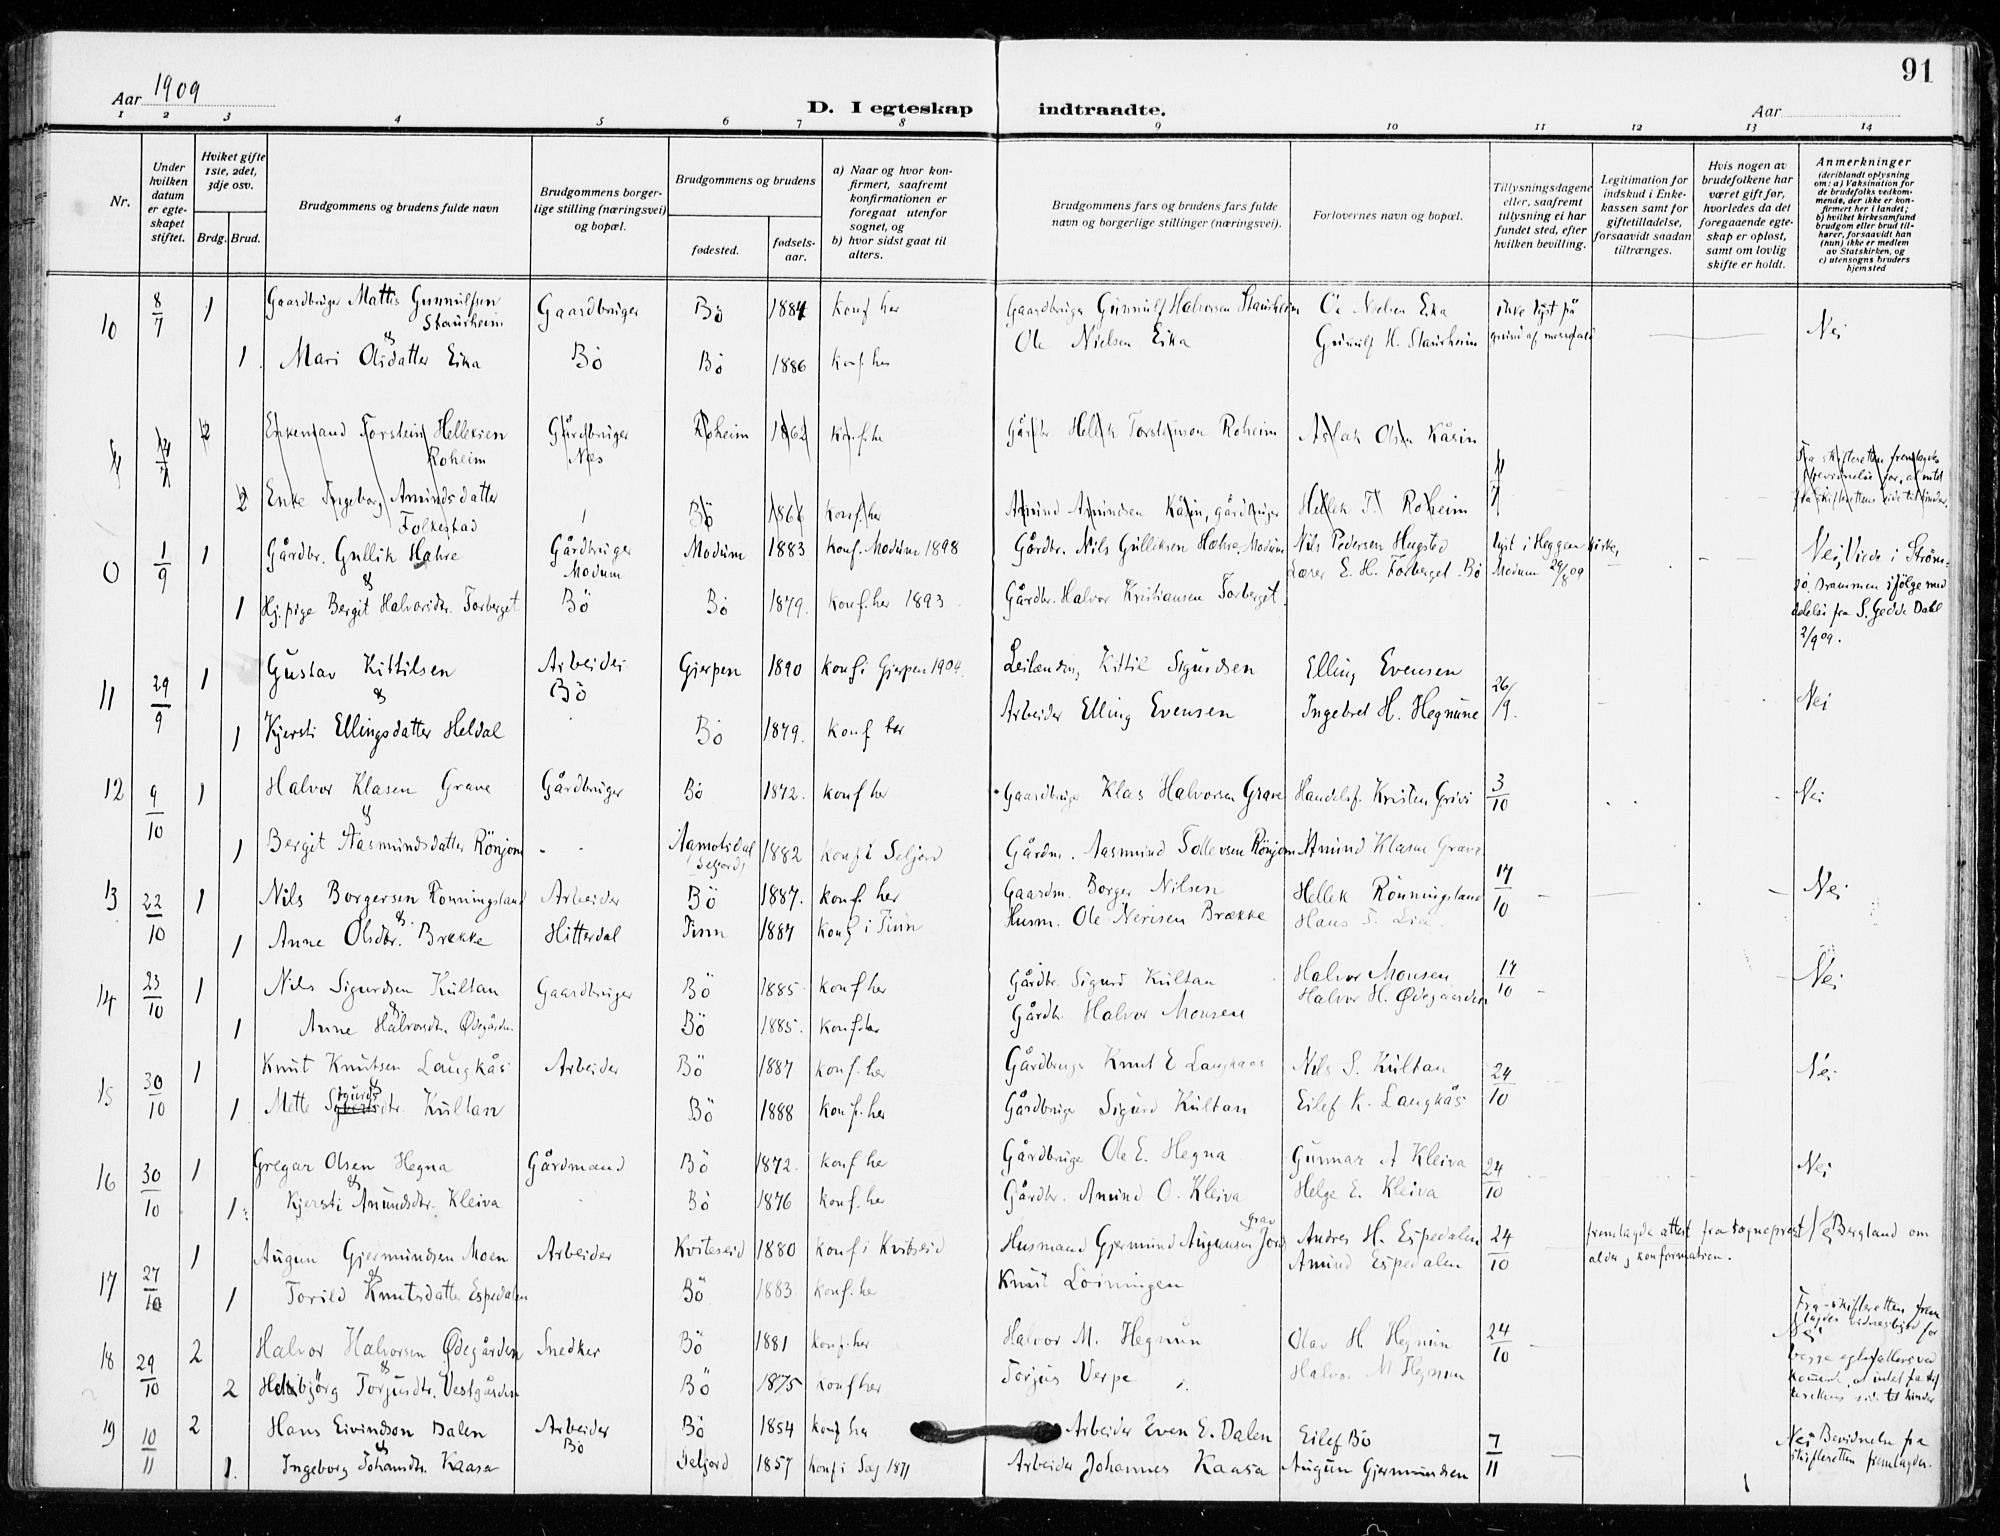 91
Aar 1909
D. I egteskap indtraadte.
Aar
1 2 3 4 5 6 7 8 9 10 11 12 13 14
Nr.
Under hvilken datum er egte-skapet stiftet.
Hviket gifte 1ste, 2det, 3dje osv.
Brdg. Brud.
Brudgommens og brudens fulde navn
Brudgommens borger-lige stilling (næringsvei) og bopæl.
Brudgommens og brudens
fødested.
fødsels-aar.
a) Naar og hvor kon-firmert, saafremt konfirmationen er foregaat utenfor sognet, og
b) hvor sidst gaat til alters.
Brudgommens fars og brudens fars fulde navn og borgerlige stillinger (næringsvei).
Forlovernes navn og bopæl.
Tillysningsdagene eller, saafremt tillysning ei har fundet sted, efter hvilken bevilling.
Legitimation for indskud i Enke-kassen samt for giftetilladelse, forsaavidt saadan tiltrænges.
Hvis nogen av brudefolkene har været gift før, hvorledes da det foregaaende egte-skap er opløst, samt om lovlig skifte er holdt.
Anmerkninger (deriblandt oplysning om: a) Vaksination for de brudefolks vedkom-mende, der ikke er kon-firmert her i landet; b) hvilket kirkesamfund brudgom eller brud til-hører, forsaavidt han (hun) ikke er medlem av Statskirken, og c) utensogns bruders hjemsted
10 8/7 1 Gaardbruger Mattis Gunnulfsen Staurheim Gaardbruger Bö 1884 konf her Gaardbruger Gunnulf Halvorsen Staurheim Ole Nielsen Eika ikke lyst på Nei
& 1 Mari Olsdatter Eika Bö Bö 1886 konf. her Ole Nielsen Eika Gunnulf H. Staurheim grund af
11 14/7 2 Enkemand Torstein Helleksen Roheim Gårdbruger Næs Roheim 1862 konf. her Gårdbr. Hellek Torsteinson Roheim Aslak Olsen Kåsin 11/7 Fra skifteretten
2 Enke Ingeborg Amundsdatter Folkestad Bö 1866 konf. her Amund Amundsen Kåsin, gårdbruger Hellek T. Roheim fra skifterettens side til hinder.
0 1/9 1 Gårdbr. Gullik Hæhre Gårdbruger Modum Modum 1883 konf. Modum 1898 Gårdbr. Nils Gulleksen Hæhre, Modum Nils Pedersen Hugsted lyst i Heggen kirke, Nei, Viede i Ströms-
& 1 Hj. pige Bergit Halvorsdtr. Forberget Bö Bö 1879. konf. her 1893 Gårdbr. Halvor Kristiansen Forberget. Lærer E. H. Forberget. Bö Modum 29/8 09 sö Drammen ifølge med
delelse fra S. Gedde Dahl
2/9 09.
11 29/9 1 Gustav Kittilsen Arbeider Bö Gjerpen 1890 konf i Gjerpen 1904. Leilænding Kittil Sigurdsen Elling Evensen 26/9. Nei
& 1 Kjersti Ellingsdatter Heldal Bö 1879. konf her Arbeider Elling Evensen Ingebret H. Hegnune
12 9/10 1 Halvor Klasen Grave Gårdbruger Bö 1872. konf her Gaardbruger Klas Halvorsen Grave Handelsf. Kristen Grivi 3/10 Nei
& 1 Bergit Aasmundsdatter Rönjom Aamotsdal (Seljord) 1882 konf i Seljord Gårdm. Aasmund Tollevsen Rönjom Amund Klasen Grave
13 22/10 1 Nils Borgersen Rönningsland Arbeider Bö 1887. konf her Gaardm. Borger Nilsen Hellek Rönningsland 17/10 Nei
& 1 Anne Olsdtr. Brække Hitterdal Tinn 1887 konf i Tinn Husm. Ole Nerisen Brække Hans T. Lia.
14 23/10 1 Nils Sigurdsen Kultan Gaardbruger Bö 1885. konf her Gårdbr. Sigurd Kultan Halvor Monsen 17/10 Nei
& 1 Anne Halvorsdtr. Ødegården. Bö 1885. konf. her Gårdbr. Halvor Monsen Halvor H. Ødegaarden
15 30/10 1 Knut Knutsen Langkås Arbeider Bö 1887 konf. her Gårdbruger Knut E Langkaas Nils S. Kultan 24/10 Nei
& 1 Mette Sigurdsdtr. Kultan Bö 1888 konf. her Gårdbruger Sigurd Kultan Eilef K. Langkås
16 30/10 1 Gregar Olsen Hegna Gårdmand Bö 1872. konf. her Gårdbruger Ole E. Hegna Gunnar A Kleiva 24/10 Nei
& 1 Kjersti Amundsdtr. Kleiva Bö 1876 konf. her Gårdbr. Amund O. Kleiva Helge E. Kleiva
17 27/10 1 Augun Gjermundsen Moen Arbeider Kviteseid 1880 konf i Kviteseid Husmand Gjermund Augunsen Jordgrav Andres H. Espedalen 24/10 fremlagde attest fra sogneprest Bergland om Nei
& 1 Torild Knutsdatter Espedalen Bö 1883. konf. her Knut Loiningen Amund Espedalen alder og konformation.
18 29/10 2 Halvor Halvorsen Ødegården Snedker Bö 1881 konf. her Halvor M. Hegnun Olav H. Hegnun 24/10 Nei Fra skifteretten frem
& 2 Helebjörg Torjusdtr. Vestgården Bö 1875 konf her Torjus Verpe Halvor M Hegnun lagdes vidnesbyrd for
begge
kommende, at intet fra skif
terettens side til hinder
19 10/11 2 Hans Eivindson Dalen Arbeider Bö Bö 1854 konf her Arbeider Even E. Dalen Eilef Bö 7/11 Nei Bevidnelse fra
& 1. Ingeborg Johansdtr. Kaasa Seljord 1857 konf i Sag 1871 Arbeider Johannes Kaasa Augun Gjermundsen skifteretten fremlagdes.